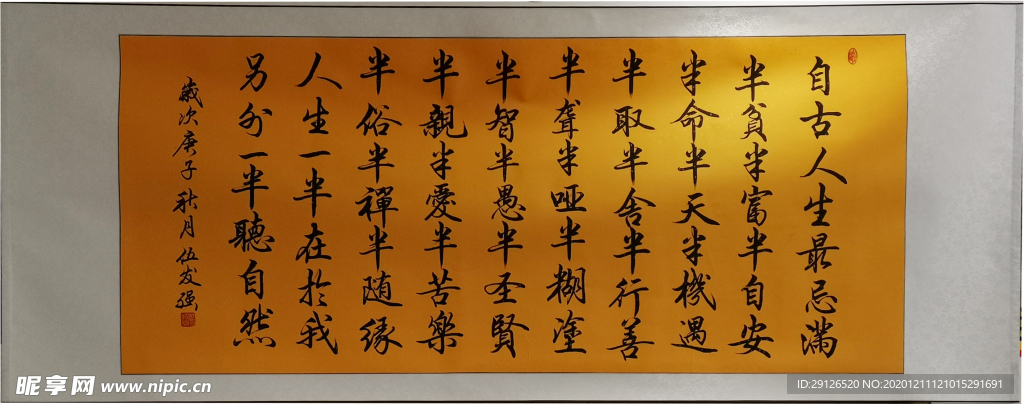 自古人生最忌满
半貧半富半自安
半命半天半機遇
半取半舍半行善
半聋半哑半糊塗
半智半愚半圣賢
半親半愛半苦樂
半俗半禪半随缘
人生一半在於我
另外一半聽自然
歲次庚子秋月伍发强
昵享网 www.nipic.cn
ID:29126520 NO:20201211121015291691